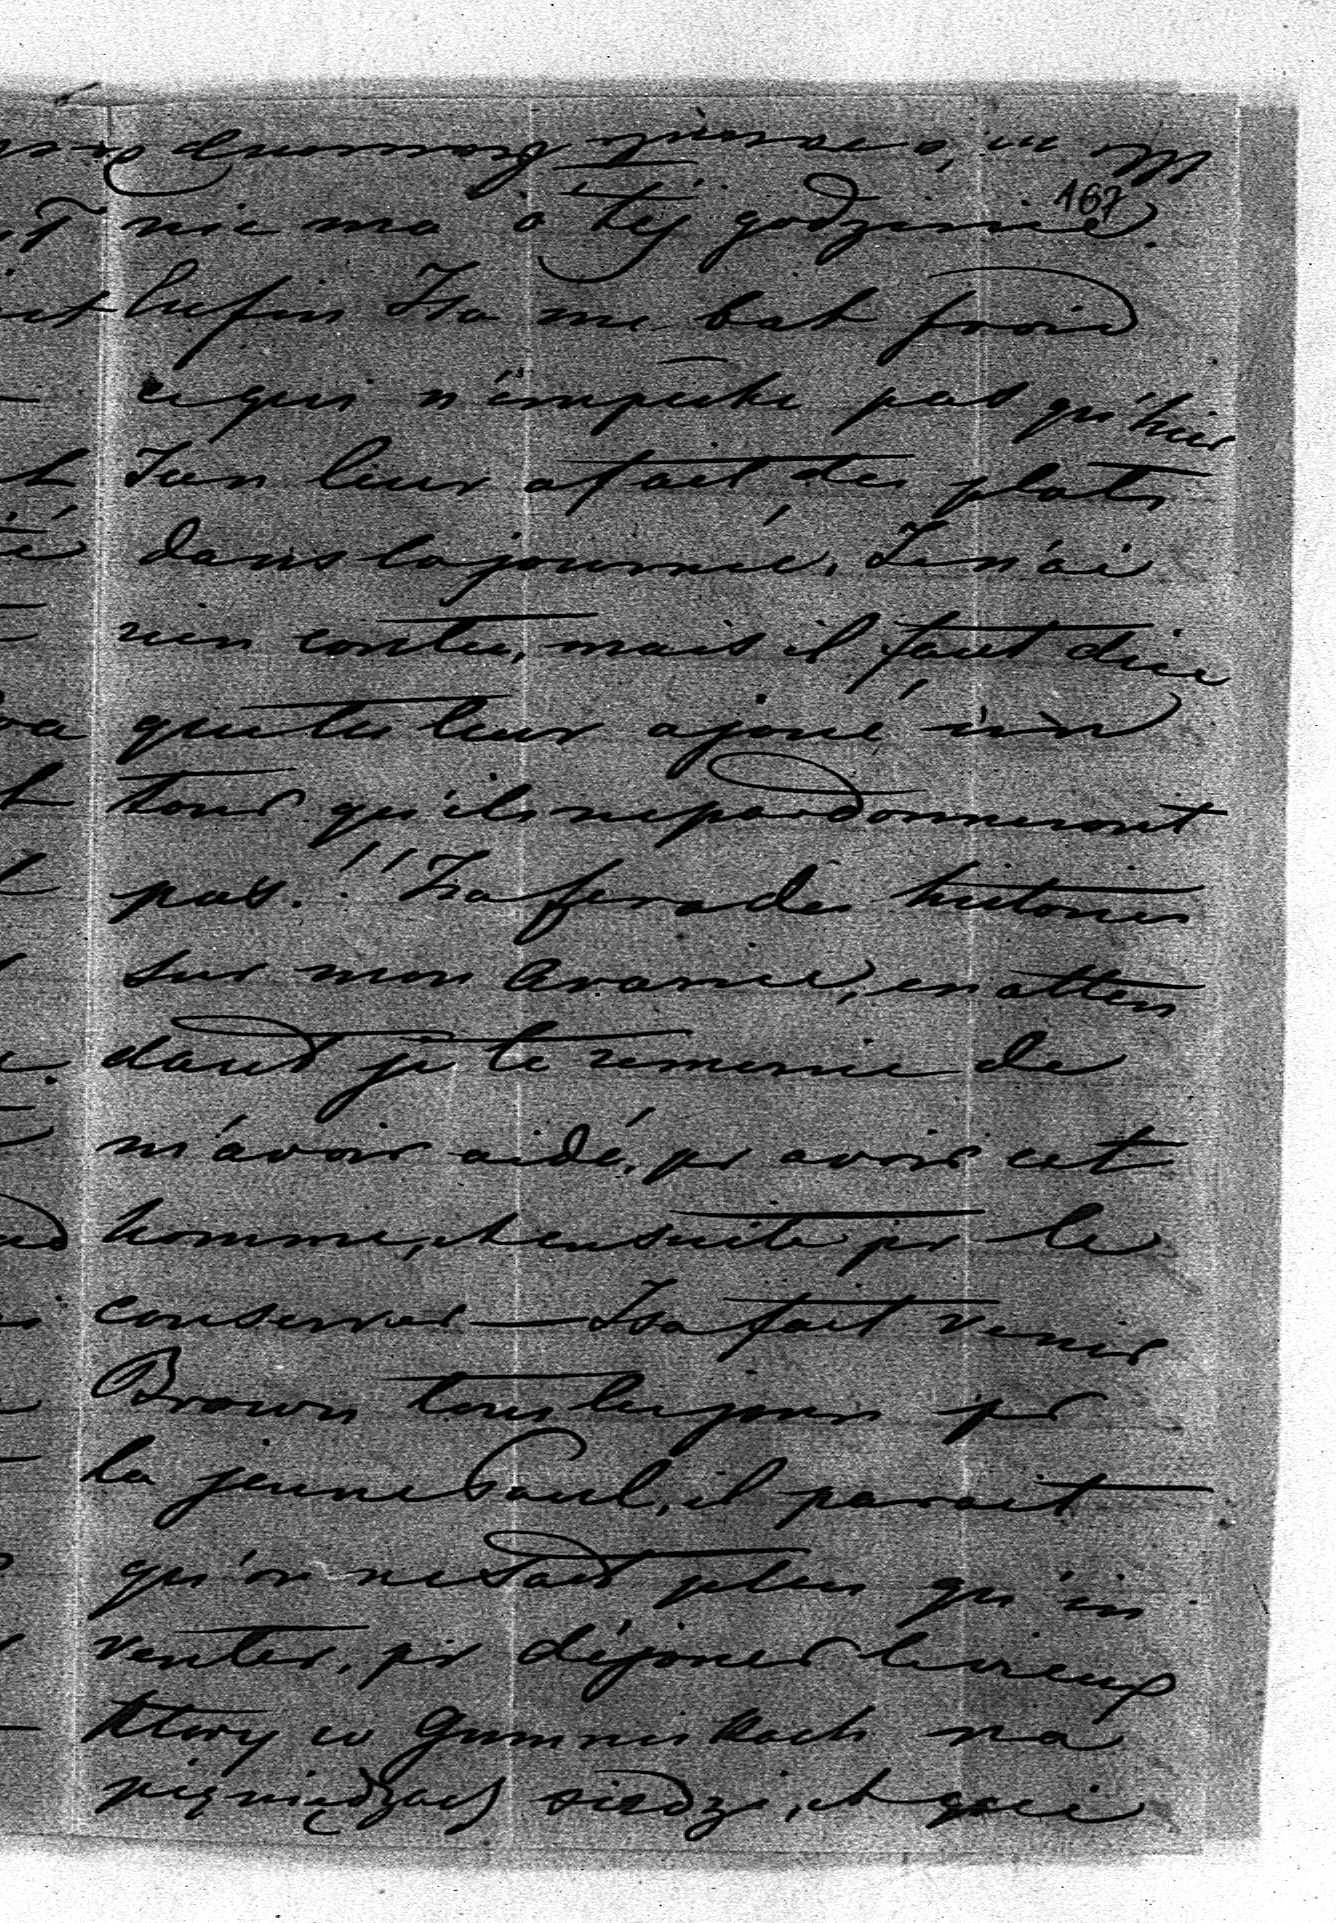 167
nic ma o tej godzinie.
Enfin Iza me bat froid
ce qui n'empêche pas qu'hier
Jan leur a fait des plats
dans la journée. Je n'ai
rien contre, mais il faut dire
que tu leur a joué un
tour qu'ils ne pardonneront
pas.!! Iza fera des histoires
sur mon avarice, en atten
dant je te remercie de
m'avoir aidé, pr avoir cet
homme, et ensuite pr le
conserver — Iza fait venir
Brown tous les jours pr
la jeune Paul, il parait
qu'on ne sait plus qu'in
venter, pr déjouer le vieux
który w Gumniskach na
pięniądzach siedzi, et qui